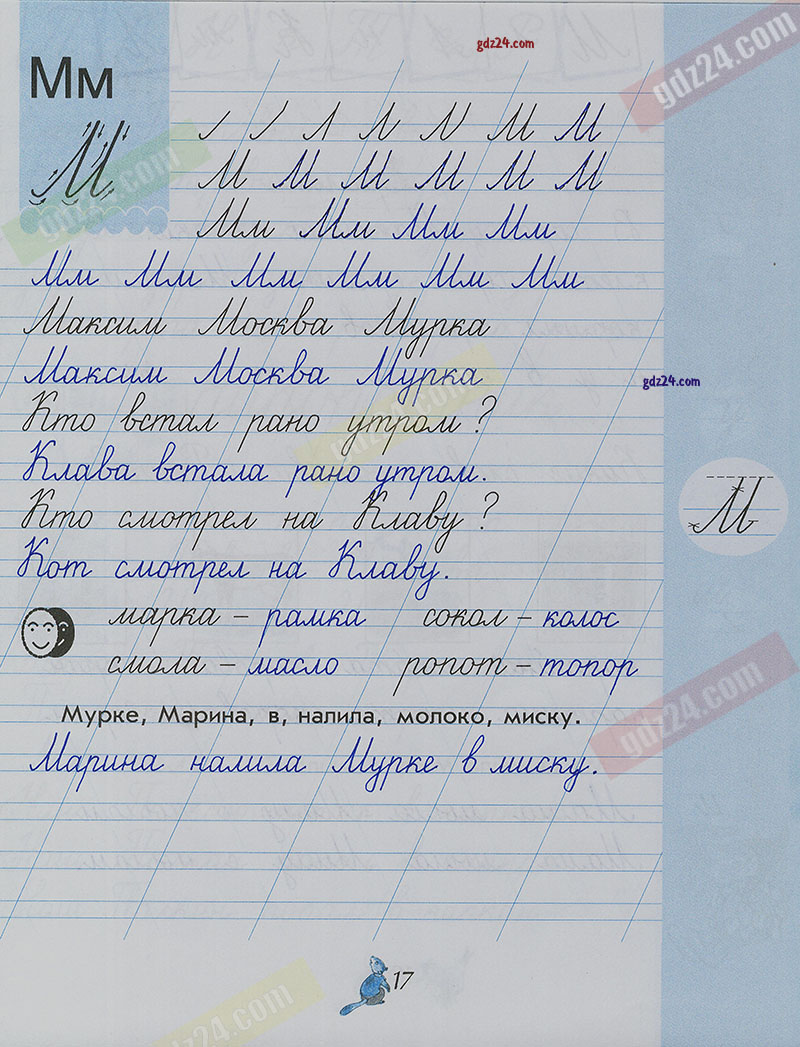 gdz24.com
gdz24.com
Мм
М
М М
М М М М М М
Мм Мм Мм Мм
Мм Мм Мм Мм Мм Мм
Максим Москва Мурка
Максим Москва Мурка
gdz24.com
Кто встал рано утром?
gdz24.com
Клава встала рано утром.
Кто смотрел на Клаву?
М
Кот смотрел на Клаву.
марка – рамка сокол – колос
смола – масло ропот – топор
gdz24.com
Мурке, Марина, в, налила, молоко, миску.
Марина налила Мурке в миску.
17
gdz24.com